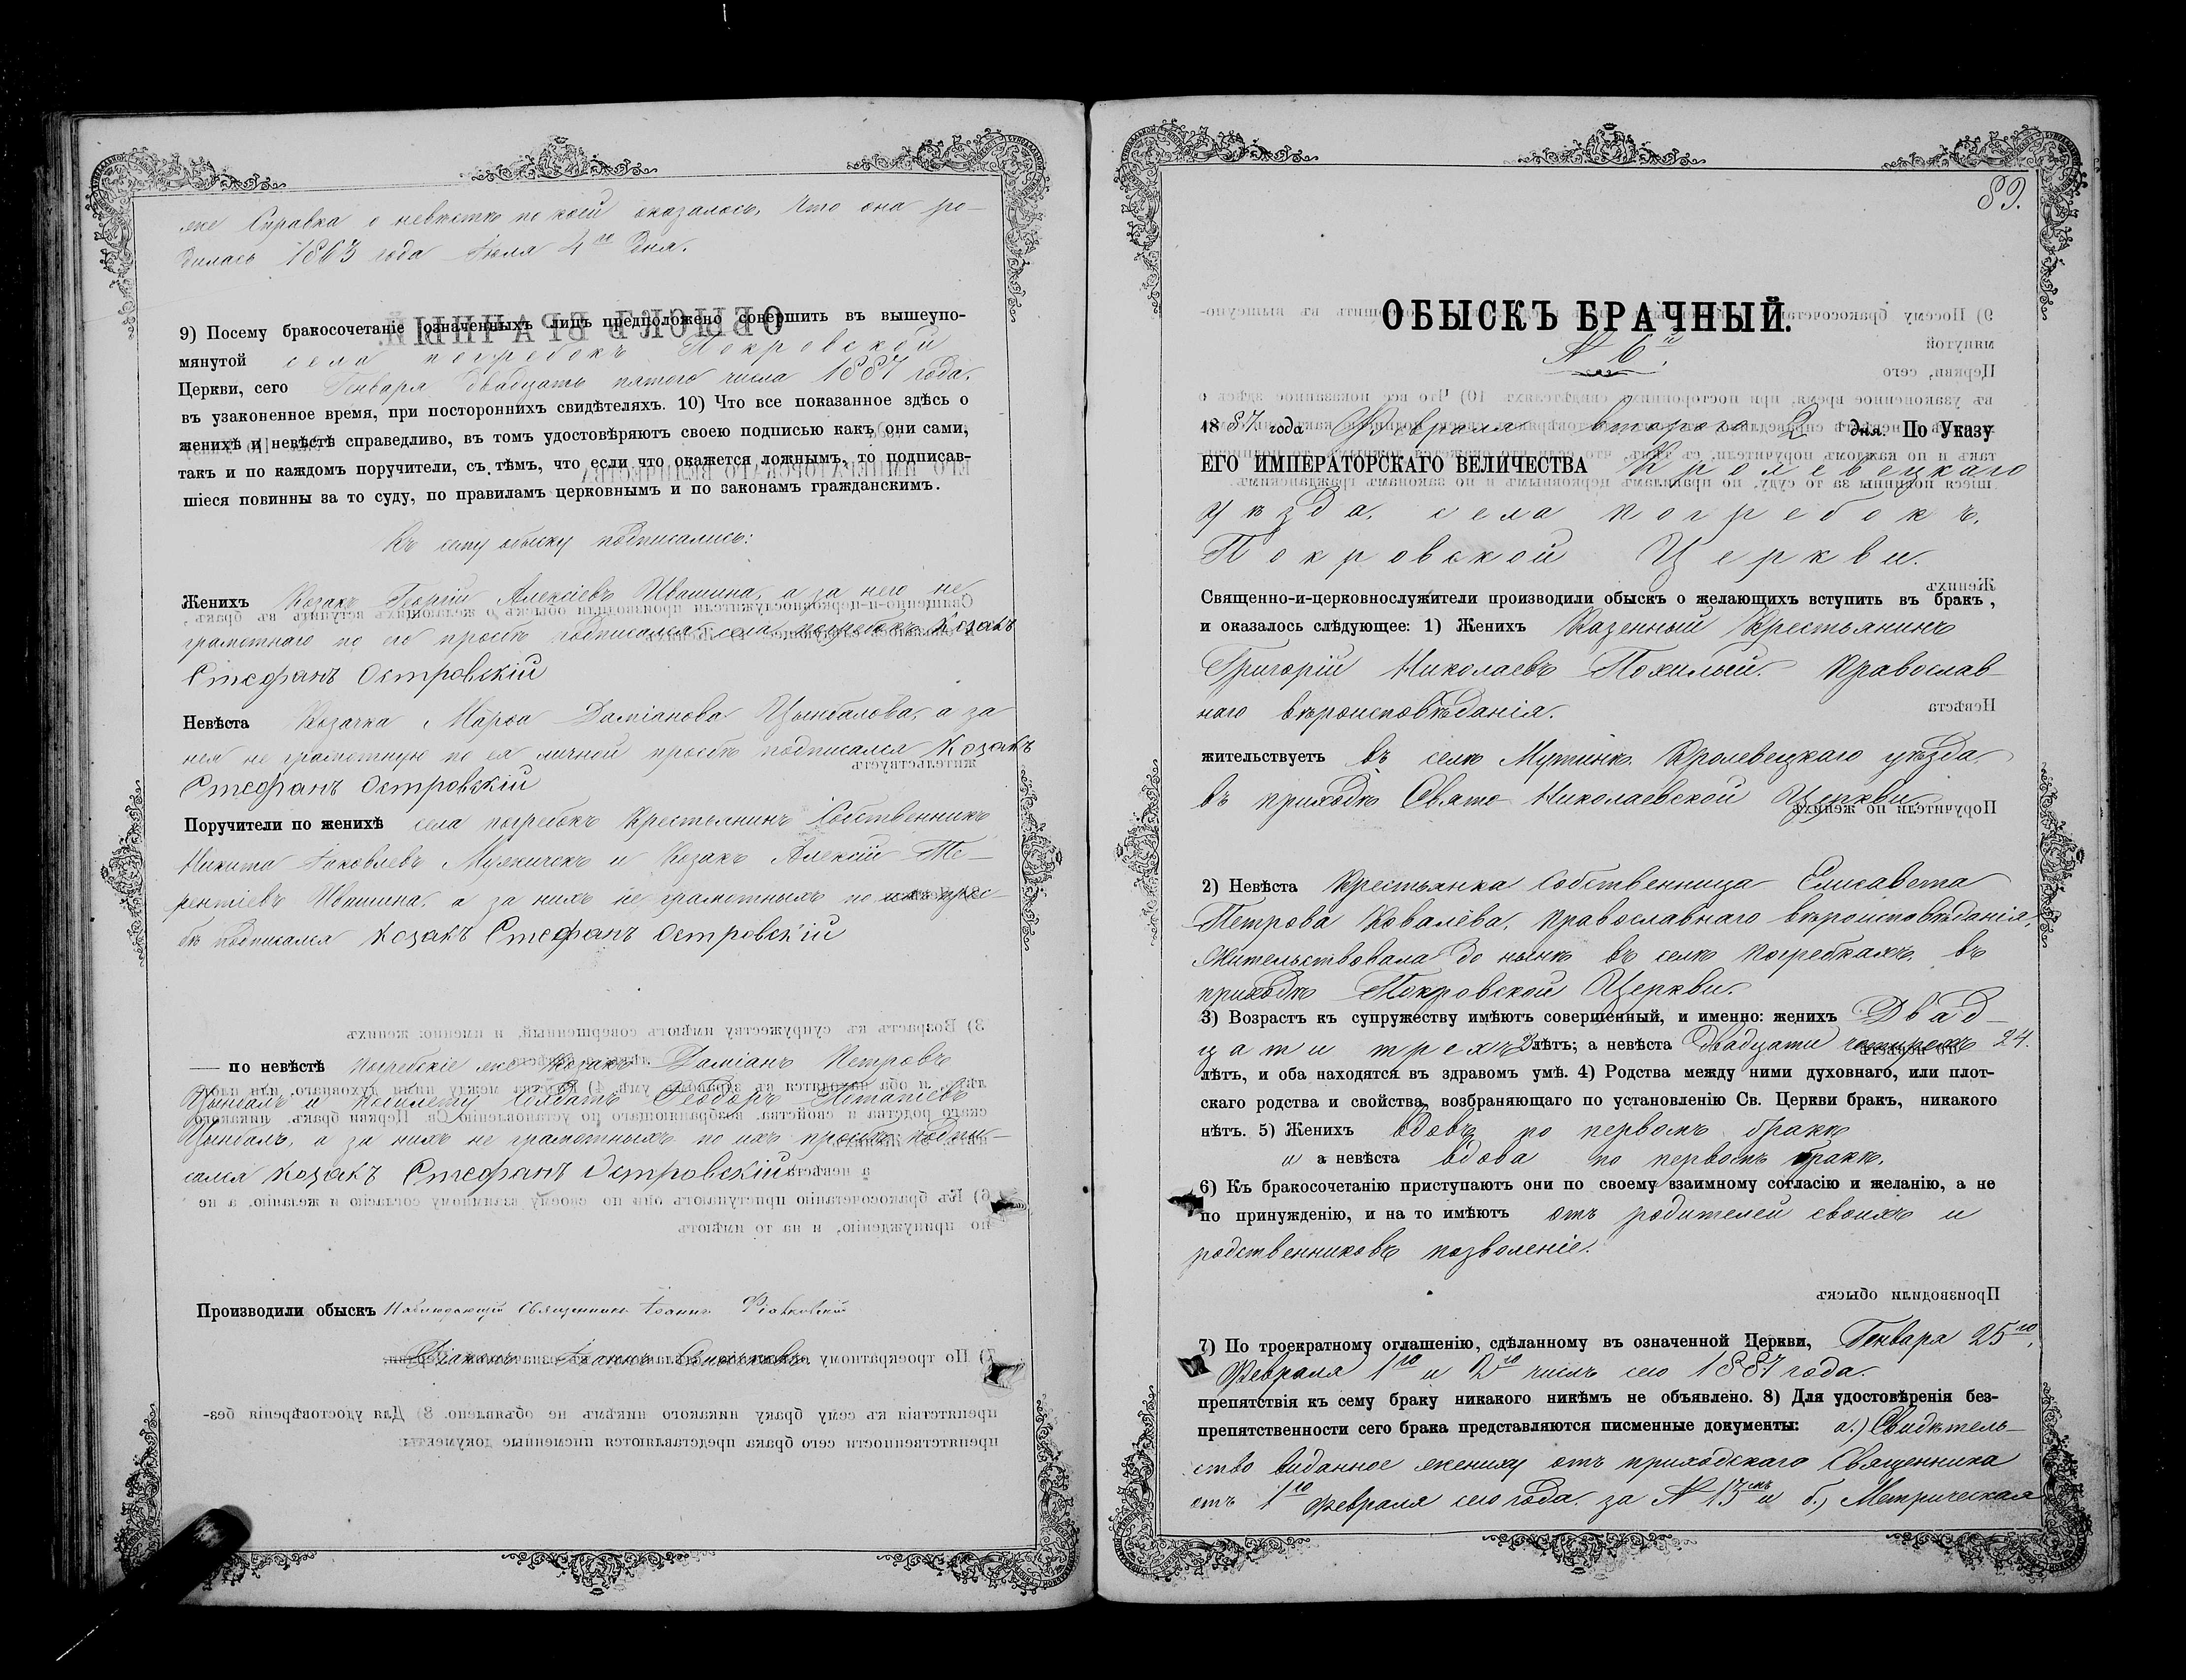 же Справка о невѣстѣ по коей оказалось, что она ро-
дилась 1863 года Іюля 4го дня.
9) Посему бракосочетаніе означенныхъ лицъ предположено совершить въ вышеупо-
мянутой села погребокъ Покровской
Церкви, сего Генваря двадцать пятого числа 1887 года.
въ узаконенное время, при постороннихъ свидѣтеляхъ. 10) Что все показанное здѣсь о
женихѣ и невѣстѣ справедливо, въ томъ удостовѣряютъ своею подписью какъ они сами,
такъ и по каждомъ поручители, съ тѣмъ, что если что окажется ложнымъ, то подписав-
шіеся повинны за то суду, по правиламъ церковнымъ и по законамъ гражданскимъ.
Къ сему обыску подписались:
Женихъ Козакъ Георгій Алексіевъ Ивашина, а за него не
грамотнаго по его просьбѣ подписался села погребокъ Козакъ
Стефанъ Островскій
Невѣста Козачка Марѳа Даміанова Цынбалова, а за
нея не грамотную по ея личной просьбѣ подписался Козакъ
Стефанъ Островскій
Поручители по женихѣ села погребокъ Крестьянинъ Собственникъ
Никита Іаковлевъ и Козакъ Алексій Те-
рентіевъ Ивашина, а за нихъ не грамотныхъ по ихъ прось-
бѣ подписался Козакъ Стефанъ Островскій
— по невѣстѣ погребскіе же Козакъ Даміанъ Петровъ
Цынбалъ и Солдатъ Ѳеодоръ Потапіевъ
Цынбалъ, а за нихъ не грамотныхъ по ихъ просьбѣ подпи-
сался Козакъ Стефанъ Островскій
Производили обыскъ Наблюдающій Священникъ Іоаннъ
Діаконъ Іоаннъ
89.
ОБЫСКЪ БРАЧНЫЙ.
№ 6й.
1887 года Февраля второго 2 дня. По Указу
ЕГО ИМПЕРАТОРСКАГО ВЕЛИЧЕСТВА Кролевецкаго
уѣзда, села погребокъ,
Покровской Церкви.
Священно-и-церковнослужители производили обыскъ о желающихъ вступить въ бракъ,
и оказалось слѣдующее: 1) Женихъ Казенный Крестьянинъ
Григорій Николаевъ Похилый. Православ-
наго вѣроисповѣданія.
жительствуетъ въ селѣ Мутинѣ. Кролевецкаго уѣзда
въ приходѣ Свято-Николаевской Церкви
2) Невѣста Крестьянка Собственница Елисавета
Петрова Ковалёва, православнаго вѣроисповѣданія,
жительствовала до нынѣ въ селѣ погребкахъ, въ
приходѣ Покровской Церкви.
3) Возрастъ къ супружеству имѣютъ совершенный, и именно: женихъ Двад-
цати трехъ лѣтъ; а невѣста двадцати четырехъ 24.
лѣтъ, и оба находятся въ здравомъ умѣ. 4) Родства между ними духовнаго, или плот-
скаго родства и свойства, возбраняющаго по установленію Св. Церкви бракъ, никакого
нѣтъ. 5) Женихъ вдовъ по первомъ бракѣ
и а невѣста вдова по первомъ бракѣ.
6) Къ бракосочетанію приступаютъ они по своему взаимному согласію и желанію, а не
по принужденію, и на то имѣютъ отъ родителей своихъ и
родственниковъ позволеніе.
7) По троекратному оглашенію, сдѣланному въ означенной Церкви, Генваря 25го,
Февраля 1го и 2го числъ сего 1887 года.
препятствія къ сему браку никакого никѣмъ не объявлено. 8) Для удостовѣренія без-
препятственности сего брака представляются писменные документы: а.) Свидѣтель-
ство виданное жениху отъ приходскаго Священника
отъ 1го Февраля сего года. за № и б.) Метрическая